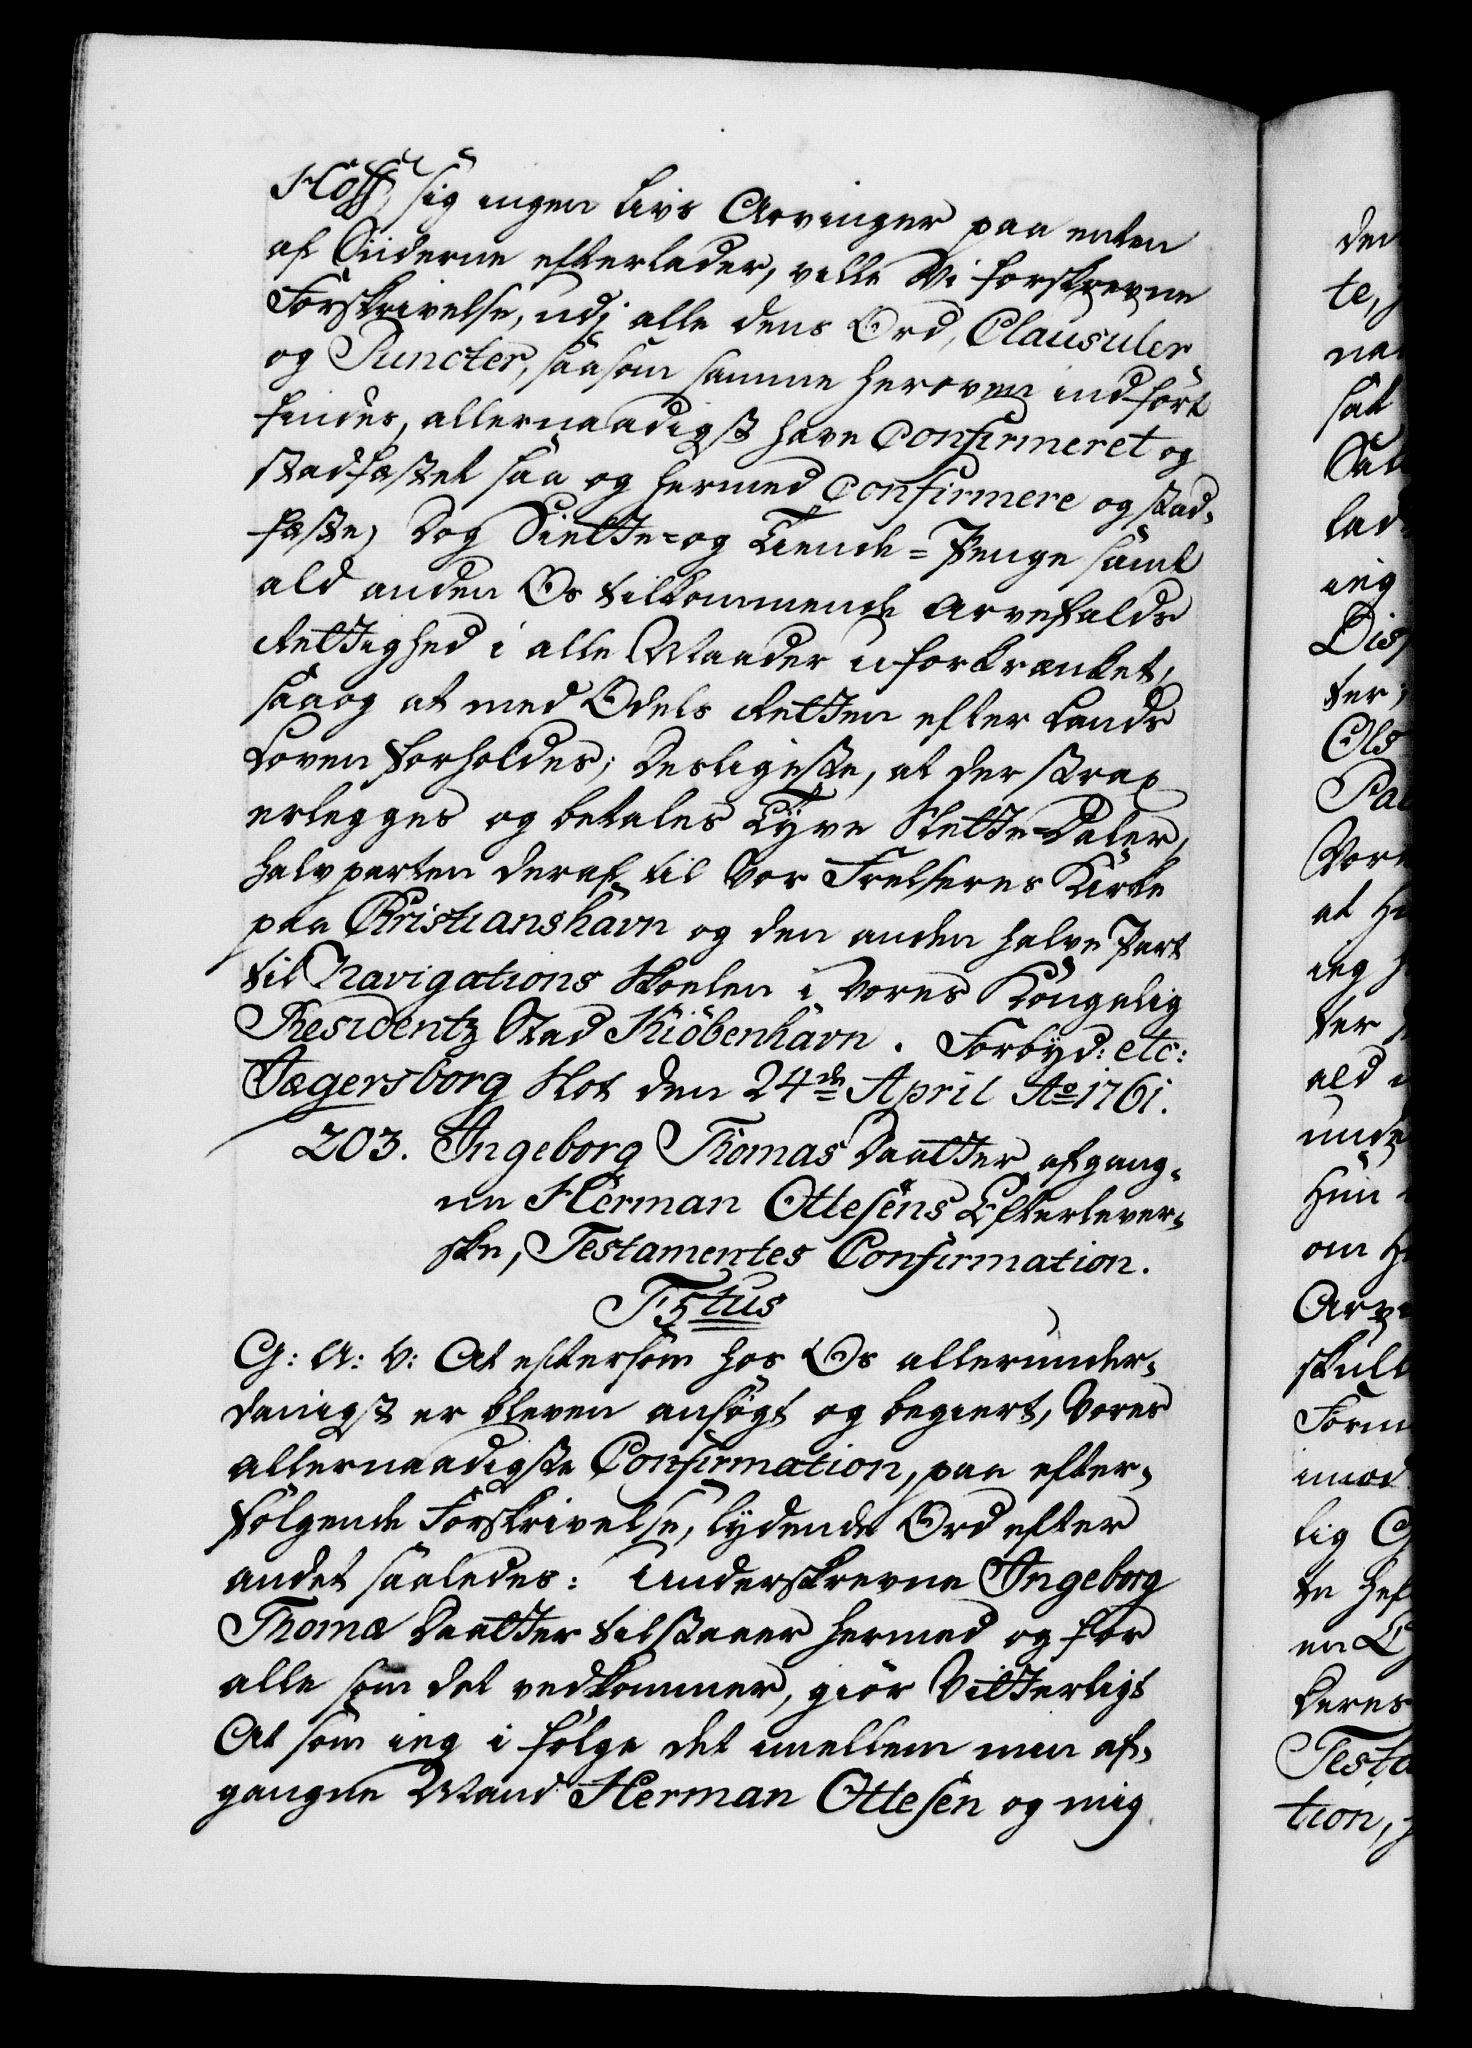 Hoff, sig ingen Livs Arvinger paa enten
af Siiderne efterlader, ville Vi forskrevne
Forskrivelse, udj alle dens Ord, Clausuler
og Puncter, saasom samme heroven indfört
findes, allernaadigst have Confirmeret og
stadfæstet saa og hermed Confirmere og stad-
fæste; Dog Siette= og Tiende=Penge samt
ald anden Os tilkommende Arvefalds
Rettighed i alle Maader uforkrænket,
saa og at med Odels Retten efter Lands
Loven forholdes; Desligeste, at der strax
erlegges og betales Tyve Slette Daler,
halvparten deraf til Vor Frelseres Kirke
paa Christianshavn og den anden halve Part
til Navigations Skoelen i Vores Kongelig
Residentz Stad Kiöbenhavn. Forbyd: etc:
Jægersborg Slot den 24de April Ao 1761.
203. Ingeborg Thomas Daatter afgang-
ne Herman Ottesens Efterlever-
ske, Testamentes Confirmation.
F5tus
G: A: V: At eftersom hos Os allerunder-
danigst er bleven ansögt og begiert, Vores
allernaadigste Confirmation, paa efter-
fölgende Forskrivelse, lydende Ord efter
andet saaledes: Underskrevne Ingeborg
Thomæ Daatter tilstaaer hermed og for
alle som det vedkommer, giör Vitterligt
At som ieg i fölge det imellem min af-
gangne Mand Herman Ottesen og mig
den
te,
ald
om
lig
tion,